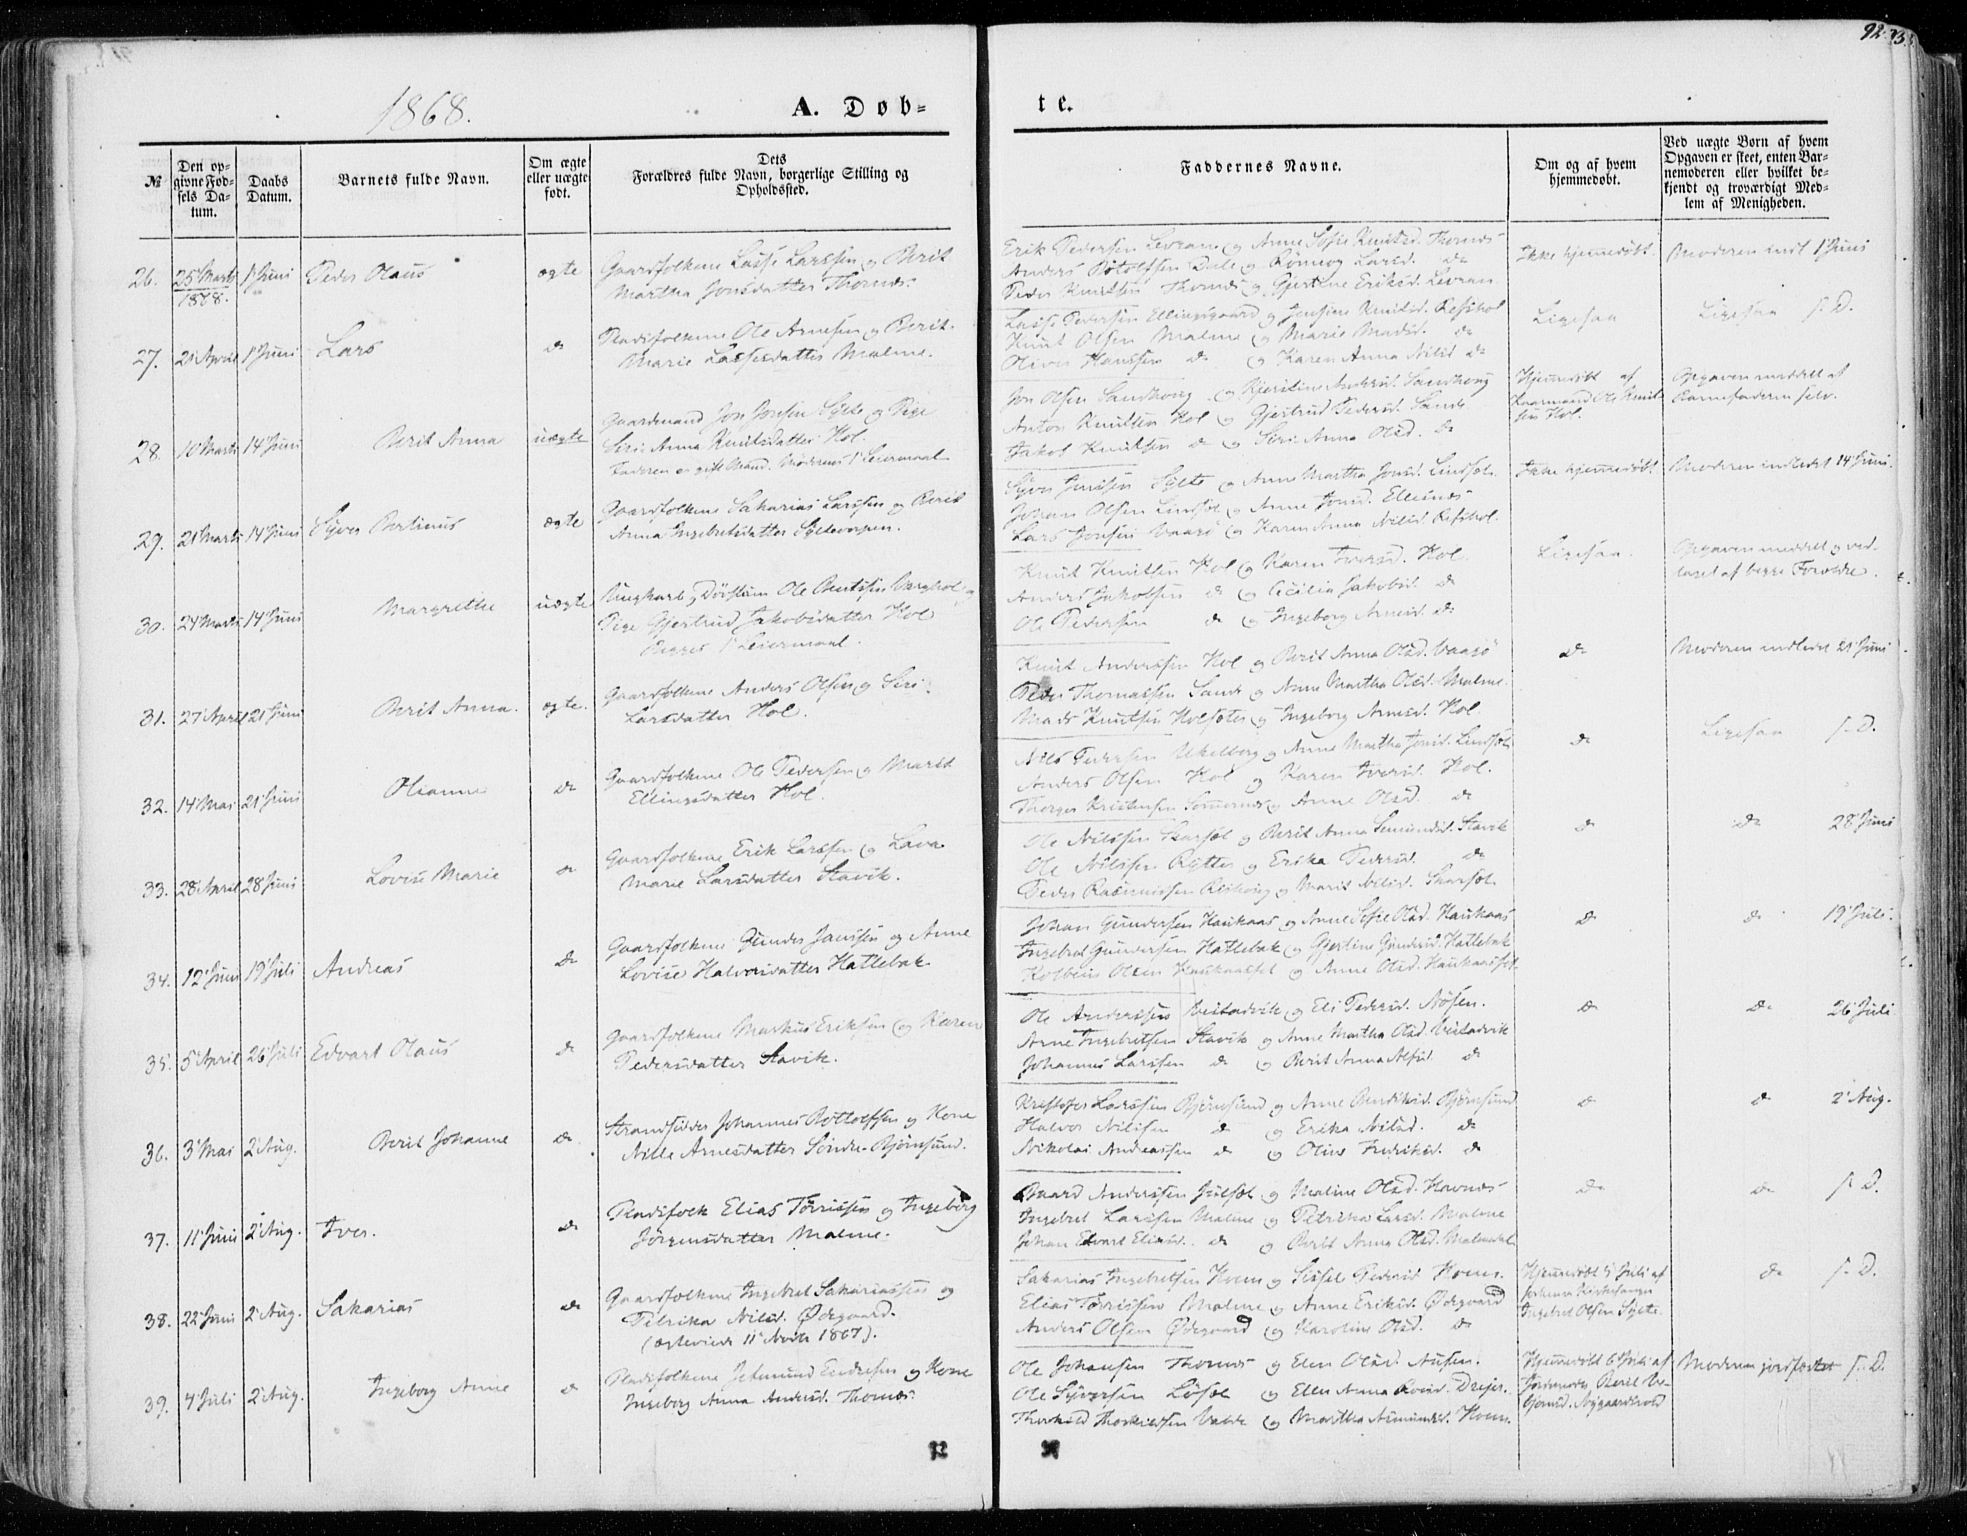 92.
1868.
A. Døb=
te.
№
Den op=
givne Fød=
sels Da=
tum.
Daabs
Datum.
Barnets fulde Navn.
Om ægte
eller uægte
født.
Dets
Forældres fulde Navn, borgerlige Stilling og
Opholdssted.
Faddernes Navne.
Om og af hvem
hjemmedøbt.
Ved uægte Børn af hvem
Opgaven er skeet, enten Bar=
nemoderen eller hvilket be=
kjendt og troværdigt Med=
lem af Menigheden.
26. 25 Marts 1868. 1 Juni Peder Olaus ægte
Gaardfolkene Lasse Larssen og Berit
Martha Jonsdatter Thornes.
Erik Pedersen Levran og Anne Sofie Knutsd. Thornes
Anders Botolfsen Dale og Rönnog Larsd. do
Peder Knutsen Thornes og Gjertine Eriksd. Levran
Ikke hjemmedöbt.
Moderen indl. 1 Juni
27. 21 April 1 Juni Lars do
Pladsfolkene Ole Arnesen og Berit
Marie Lassesdatter Malme.
Lasse Pedersen Ellingsgaard og Jensine Knutsd. Refshol
Knut Olsen Malme og Marie Madsd. do
Oliver Hanssen do og Karen Anna Nilsd do
Ligesaa
Ligesaa s. D.
28. 10 Marts 14 Juni Berit Anna uægte
Gaardmand Jon Jonsen Sylte og Pige
Siri Anna Knutsdatter Hol.
Faderen er gift Mand. Moderens 1 Leiermaal
Jon Olsen Sandhoug og Kjerstine Andersd. Sandhoug
Anton Knutsen Hol og Gjertrud Pedersd. Sande
Jakob Knutsen do og Siri Anna Olsd. do
Hjemmedöbt af
Kaarmand Ole Knut
sen Hol.
Opgaven meddelt af
Barnefaderen selv.
29. 21 Marts 14 Juni Syver Bertinus ægte
Gaardfolkene Sakarias Larssen og Berit
Anna Ingebretsdatter Syltevorpen.
Syver Jonssen Sylte og Anne Martha Jonsd. Lindset
Johan Olsen Lindset og Anne Jonsd. Ellisnes
Lars Jonsen Vaagö og Karen Anna Nilsd. Refshol.
Ikke hjemmedöbt
Moderen indledet 14 Juni.
30. 24 Marts 14 Juni Margrethe uægte
Ungkarl Ole Berntsen og
Pige Gjertrud Jakobsdatter Hol
Begges 1 Leiermaal.
Knut Knutsen Hol og Karen Iversd. Hol.
Anders Jakobsen do og Cecilia Jakobsd. do
Ole Pedersen do og Ingeborg Arnesd. do
Ligesaa.
Opgaven meddelt og ved
taget af begge Forældre.
31. 27 April 21 Juni Berit Anna. ægte.
Gaardfolkene Anders Olsen og Siri
Larsdatter Hol.
Knut Anderssen Hol og Berit Anna Olsd. Vaagö
Peder Thomassen Sande og Anne Martha Olsd. Malme
Mads Knutsen Holsæter og Ingeborg Arnesd. Hol.
do
Moderen indledet 21 Juni
32. 14 Mai 21 Juni Olianne do
Gaardfolkene Ole Pedersen og Marit
Ellingsdatter Hol.
Nils Pedersen Ukelberg og Anne Martha Jonsd. Lindset
Anders Olsen Hol og Karen Iversd. Hol.
Thorger Kristensen og Anne Olsd. do
do
Ligesaa s. D.
33. 28 April 28 Juni Lovise Marie do
Gaardfolkene Erik Larssen og Lava
Marie Larsdatter Stavik.
Ole Nilssen Skarset og Berit Anna Stavik
Ole Nilssen Rötter og Erika Pedersd. do
Peder Rasmussen og Marit Nilsd. Skarset
do
do 28 Juni
34. 12 Juni 19 Juli Andreas do
Gaardfolkene Gunder Janssen og Anne
Lovise Halvorsdatter Hatlebak
Johan Gundersen Haukaas og Anne Sofie Olsd. Haukaas
Ingebret Gundersen Hatlebak og Gjertine Gundersd. Hatlebak
Kolbein Olsen Haukaasset og Anne Olsd. Haukaasset
do
do 19 Juli.
35. 5 April 26 Juli Edvart Olaus do
Gaardfolkene Markus Eriksen og Karen
Pedersdatter Stavik.
Ole Anderssen Vestadvik og Eli Pedersd. Nösen.
Arne Ingebretsen Stavik og Anne Martha Olsd. Vestadvik
Johannes Larssen do og Berit Anna Alfsd. do
do
do 26 Juli
36. 3 Mai 2 Aug. Berit Johanne do.
Strandsidder Johannes Bottolfsen og Kone
Nille Arnesdatter Söndre-Björnsund.
Kristofer Larssen Björnsund og Anne Bendiksd. Björnsund
Halvor Nilssen do og Erika Nilsd. do
Nikolai Andreassen do og Oline Fredriksd. do
do
do 2 Aug.
37. 11 Juni 2 Aug. Iver. do
Pladsfolk Elias Törrissen og Ingeborg
Jörgensdatter Malme.
Baard Anderssen Julset og Maline Olsd. Havnes
Ingebret Larssen Malme og Petrika Larsd. Malme
Johan Edvart Eliasd. do og Berit Anna Olsd. Malmedal
do
do s. D.
38. 22 Juni 2 Aug. Sakarias do
Gaardfolkene Ingebret Sakariassen og
Petrika Nilsd. Ødegaard.
(ægteviede 11 Novbr 1867).
Sakarias Ingebretsen Hoem og Sissel Pedersd Hoem.
Elias Törrissen Malme og Anne Eriksd. Ødegaard
Anders Olsen Ødegaard og Karoline Olsd. do
Hjemmedöbt 5 Juli af
Kirkesanger
Ingebret Olsen Sylte.
do s. D.
39. 4 Juli 2 Aug. Ingeborg Anne do
Pladsfolkene Jetmund Endresen og Kone
Ingeborg Anna Andersd. Thornes
Ole Johansen Thornes og Elen Olsd. Ausen.
Ole Syversen Löset og Ellen Anna Drejer.
Thorkild Thorkildsen og Martha Hoem.
Hjemmedöbt 6 Juli af
Jordemoder Berit
Nygaardshold
Moderen jordfæstet s. D.